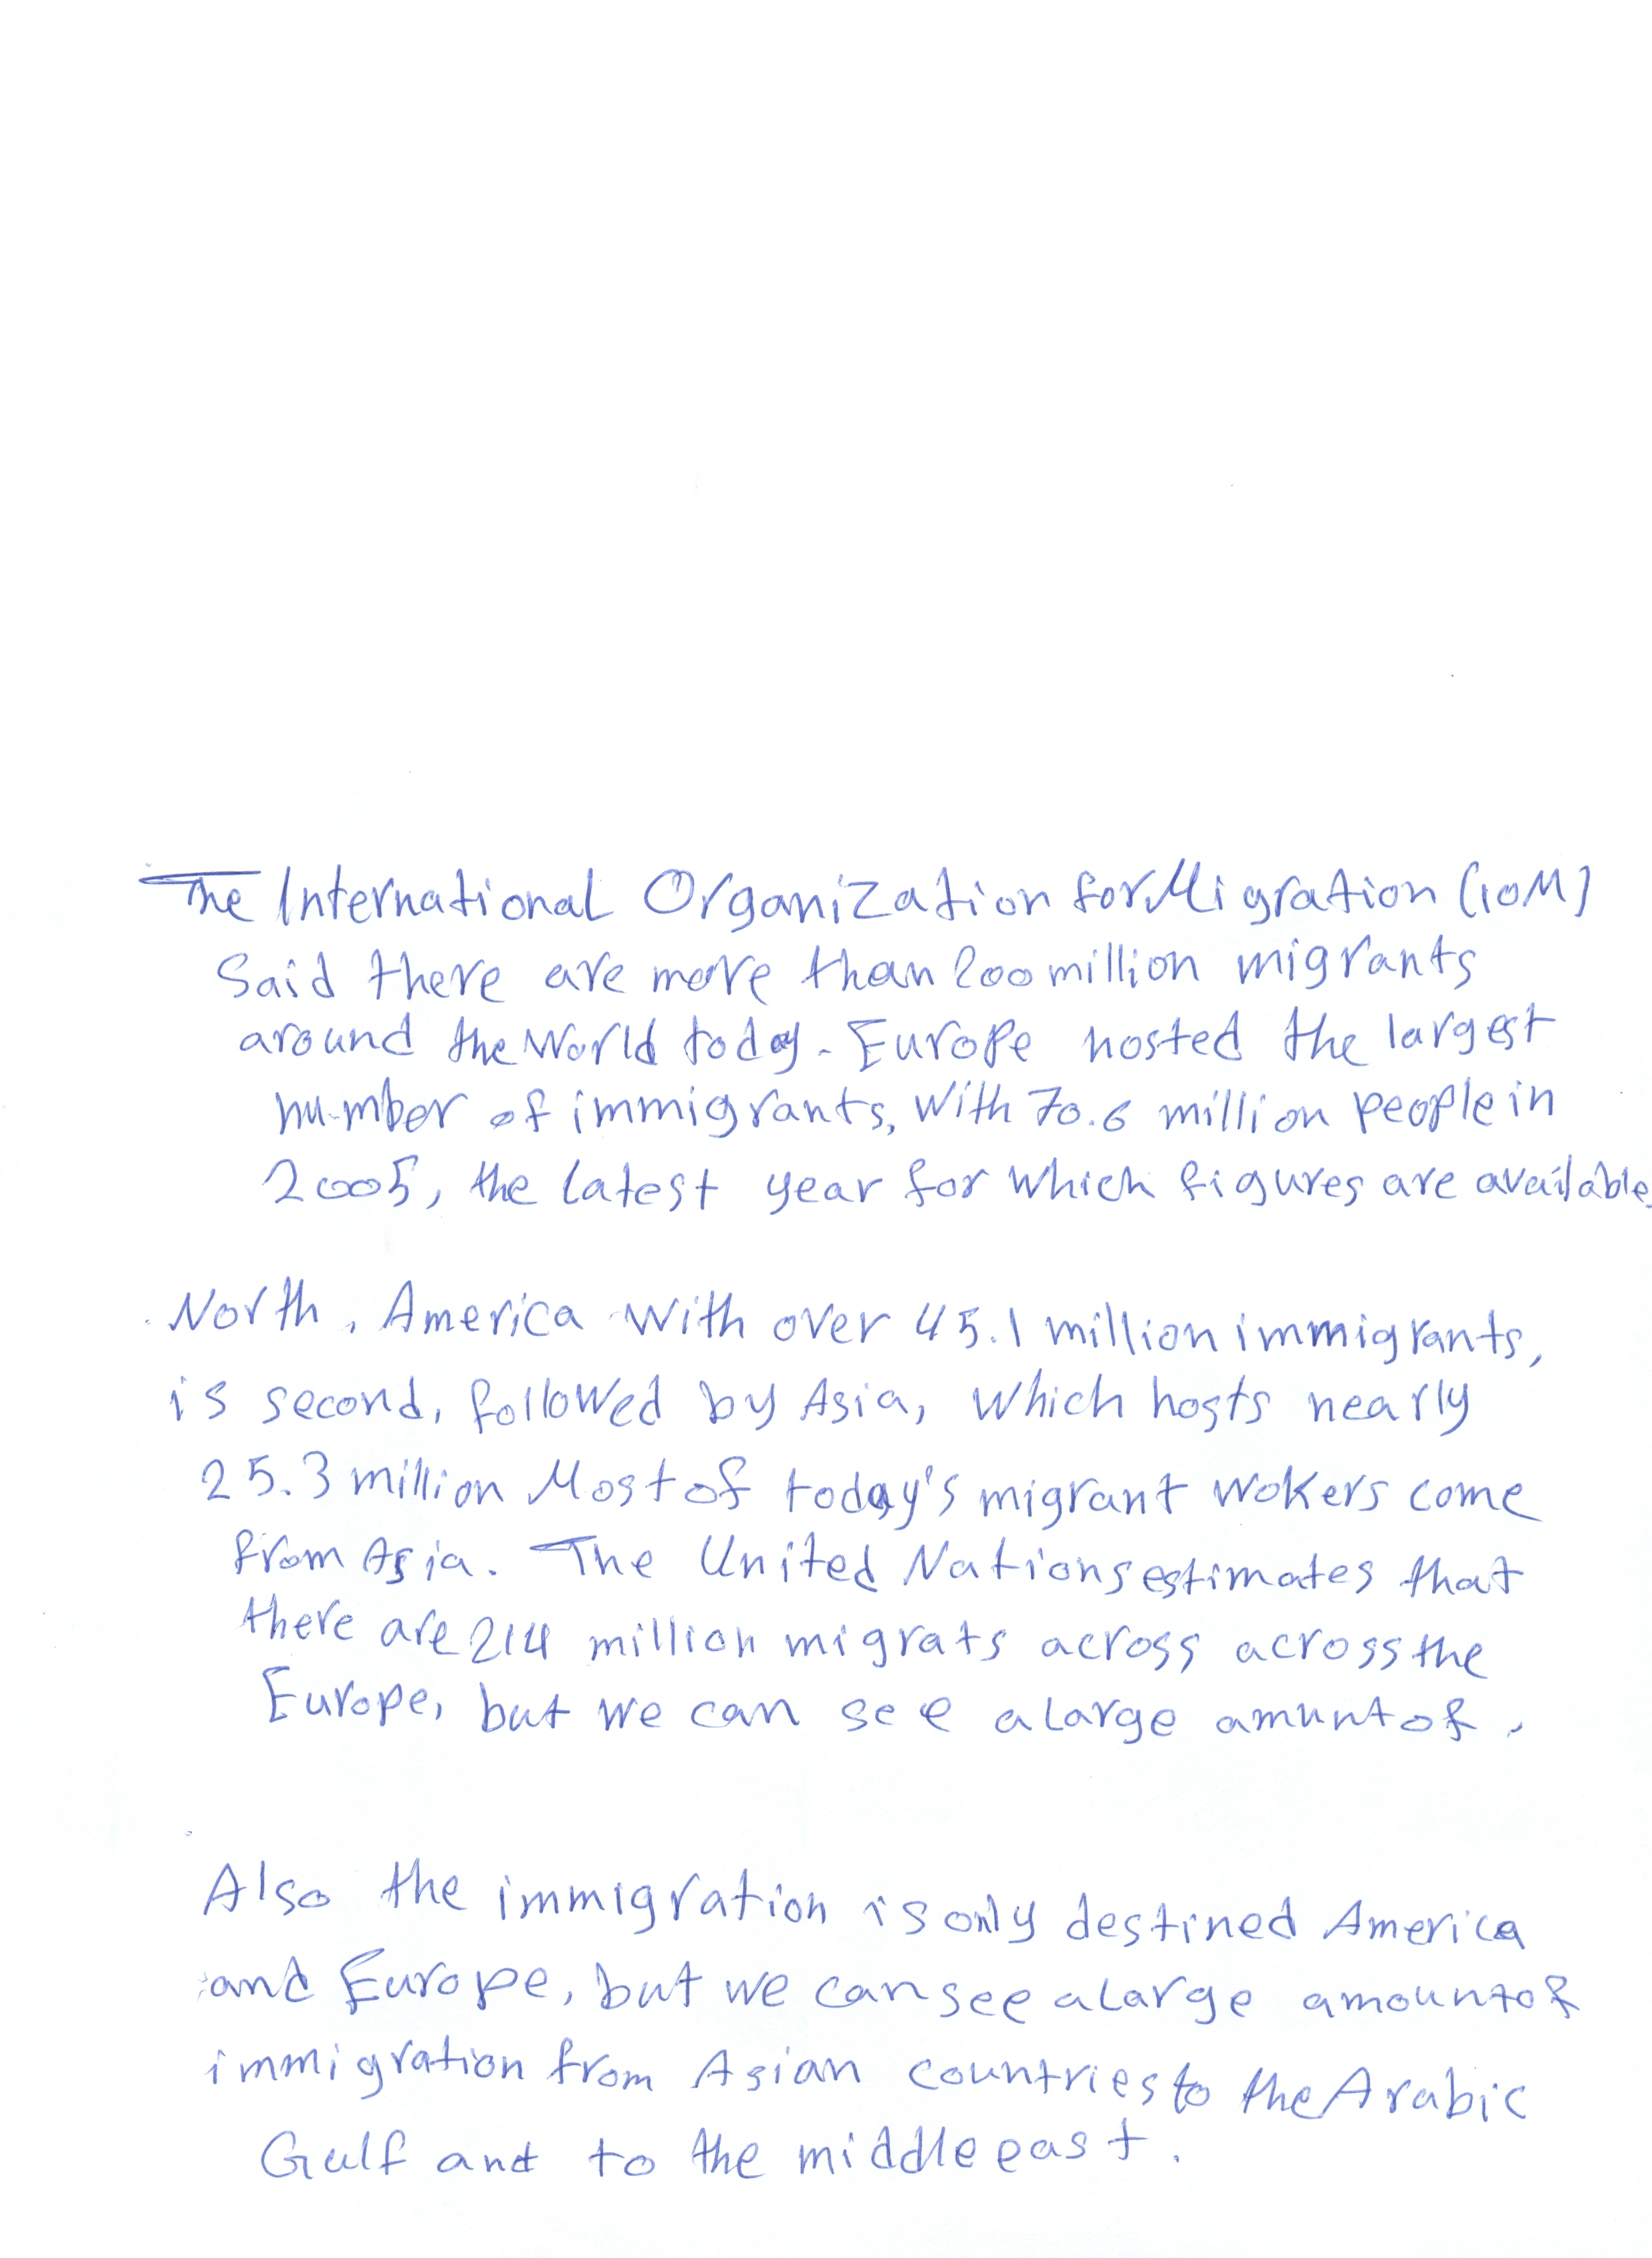 The International Organization for Migration (IOM)
Said there are more than 200 million migrants
around the World today. Europe hosted the largest
number of immigrants, With 70.6 million people in
2005, the latest year for which figures are available.
North, America With over 45.1 million immigrants,
is second, followed by Asia, which hosts nearly
25.3 million Most of today's migrant wokers come
from Asia. The United Nations estimates that
there are 214 million migrats across across the
Europe, but we can see a large amunt of,
Also the immigration is only destined America
and Europe, but we can see a large amount of
immigration from Asian countries to the Arabic
Gulf and to the middle east.